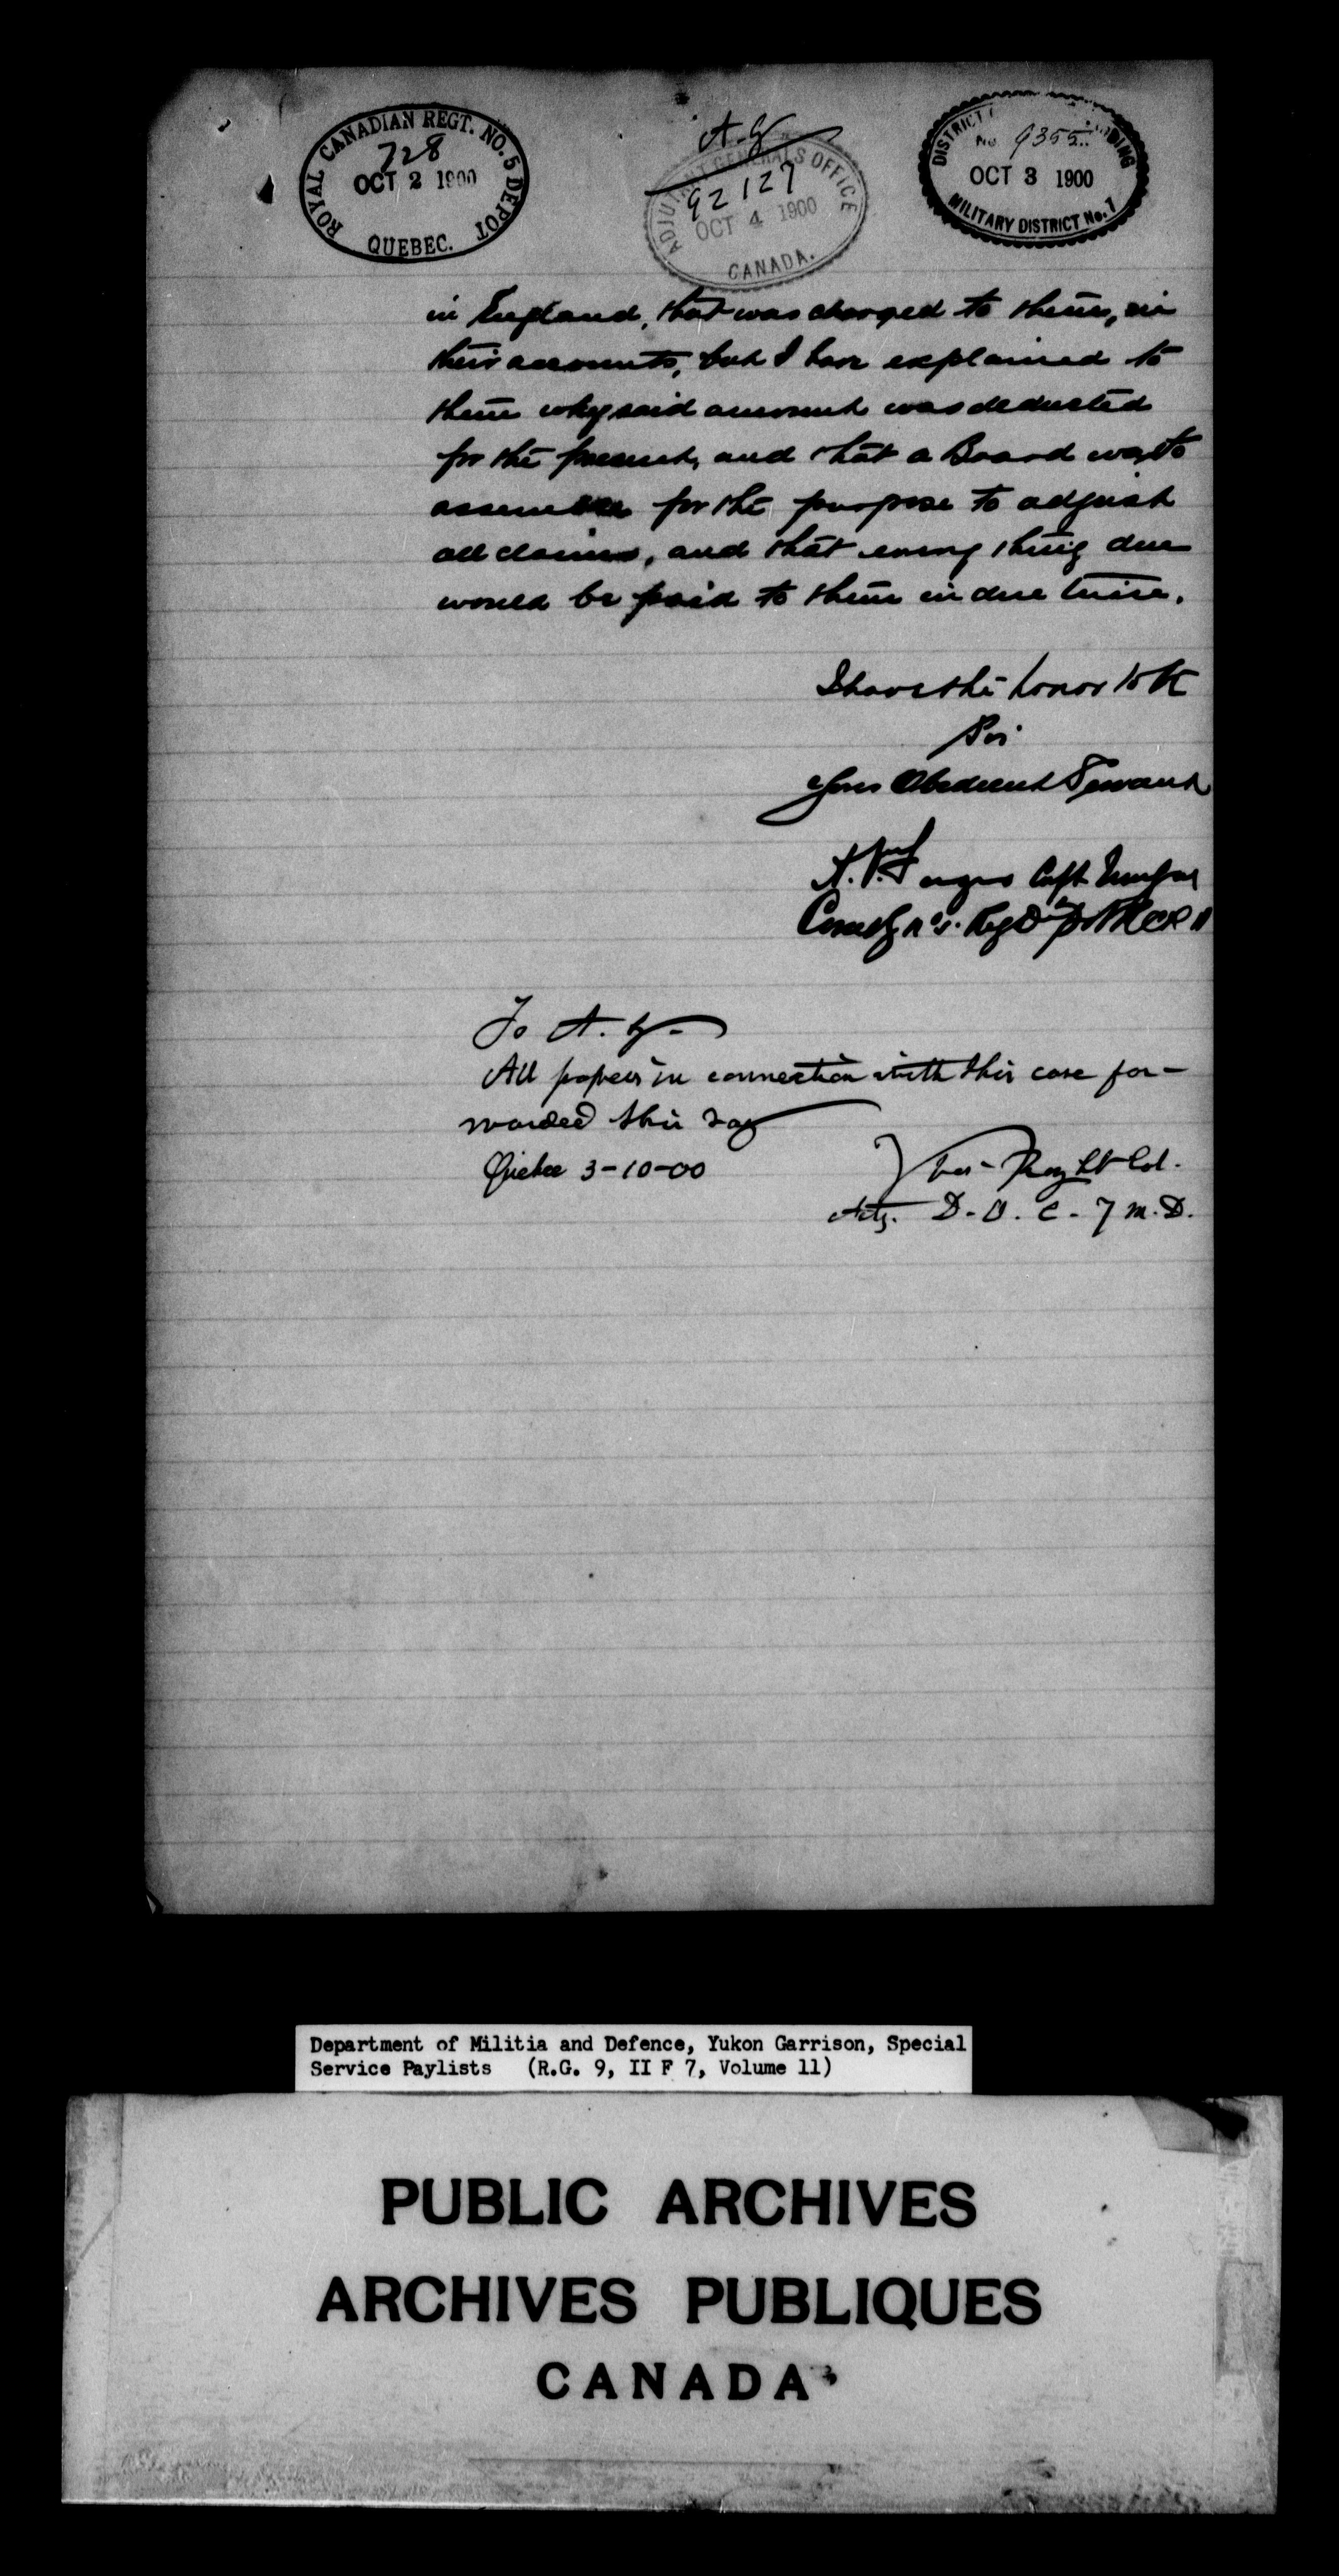 ROYAL CANADIAN REGT. NO. 5 DEPOT
728
OCT 2 1900
QUEBEC.
A.G
ADJUTANT GENERALS OFFICE
92127
OCT 4 1900
CANADA.
DISTRICT
No 9355
OCT 3 1900
MILITARY DISTRICT No. 7
in England, that was charged to them, in
their accounts, but I have explained to
them why said amount was deducted
for the present, and that a Board was to
assemble for the purpose to adjust
all claims, and that every thing due
would be paid to them in due time.
I have the honor to be
Sir
Your Obedient Servant
Capt
To A.G.
All papers in connection with this case for-
warded this day
Quebec 3-10-00
Roy Lt Col.
Actg. D.O.C. 7 M.D.
Department of Militia and Defence, Yukon Garrison, Special
Service Paylists (R.G. 9, II F 7, Volume 11)
PUBLIC ARCHIVES
ARCHIVES PUBLIQUES
CANADA